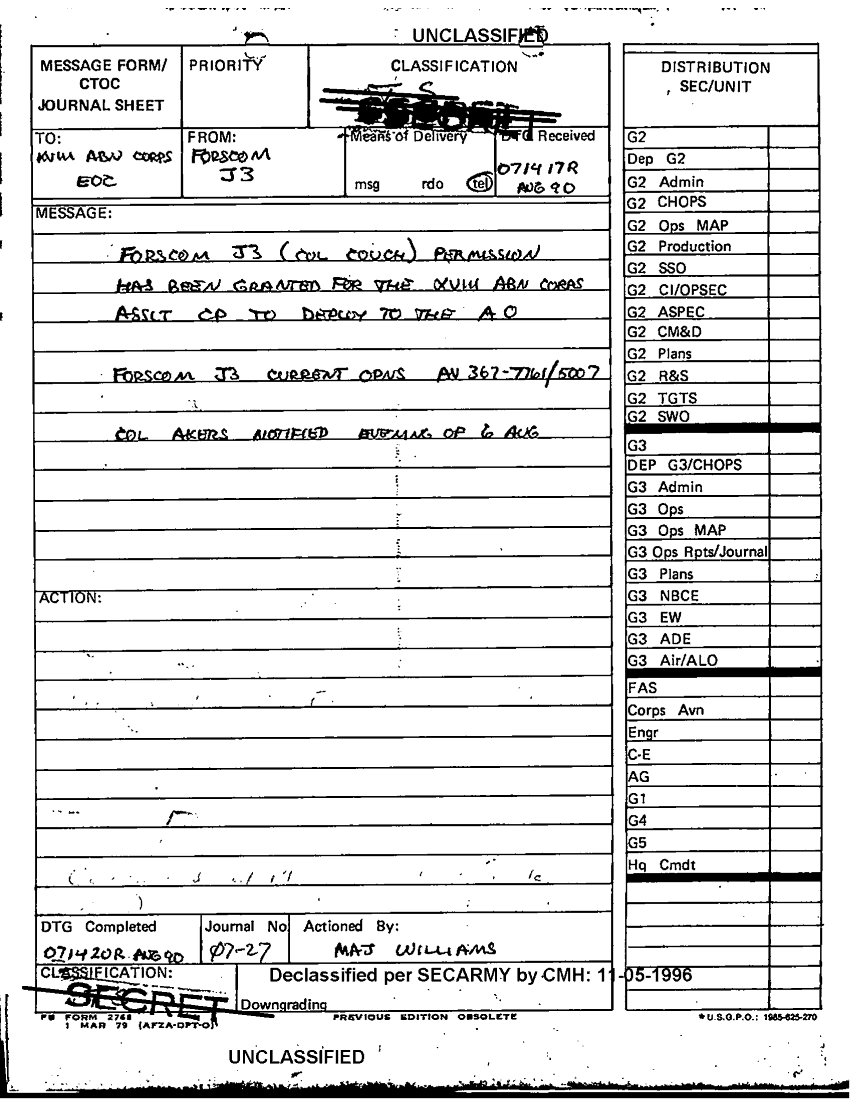 UNCLASSIFIED
MESSAGE FORM/
CTOC
JOURNAL SHEET
PRIORITY
CLASSIFICATION
T S
SECRET
TO:
XVIII ABN CORPS
EOC
FROM:
FORSCOM
J3
Means of Delivery
msg rdo tel
DTG Received
071417R
AUG 90
MESSAGE:
FORSCOM J3 (COL COUCH) PERMISSION
HAS BEEN GRANTED FOR THE XVIII ABN CORPS
ASSLT CP TO DEPLOY TO THE AO
FORSCOM J3 CURRENT OPNS AV 367-7761/5007
COL AKERS NOTIFIED EVENING OF 6 AUG
ACTION:
DTG Completed
071420R AUG 90
Journal No
07-27
Actioned By:
MAJ WILLIAMS
CLASSIFICATION:
SECRET
Declassified per SECARMY by CMH: 11-05-1996
Downgrading
FB FORM 2768
1 MAR 79 (AFZA-DPT-O)
PREVIOUS EDITION OBSOLETE
*U.S.G.P.O.: 1985-625-270
UNCLASSIFIED
DISTRIBUTION
SEC/UNIT
G2
Dep G2
G2 Admin
G2 CHOPS
G2 Ops MAP
G2 Production
G2 SSO
G2 CI/OPSEC
G2 ASPEC
G2 CM&D
G2 Plans
G2 R&S
G2 TGTS
G2 SWO
G3
DEP G3/CHOPS
G3 Admin
G3 Ops
G3 Ops MAP
G3 Ops Rpts/Journal
G3 Plans
G3 NBCE
G3 EW
G3 ADE
G3 Air/ALO
FAS
Corps Avn
Engr
C-E
AG
G1
G4
G5
Hq Cmdt